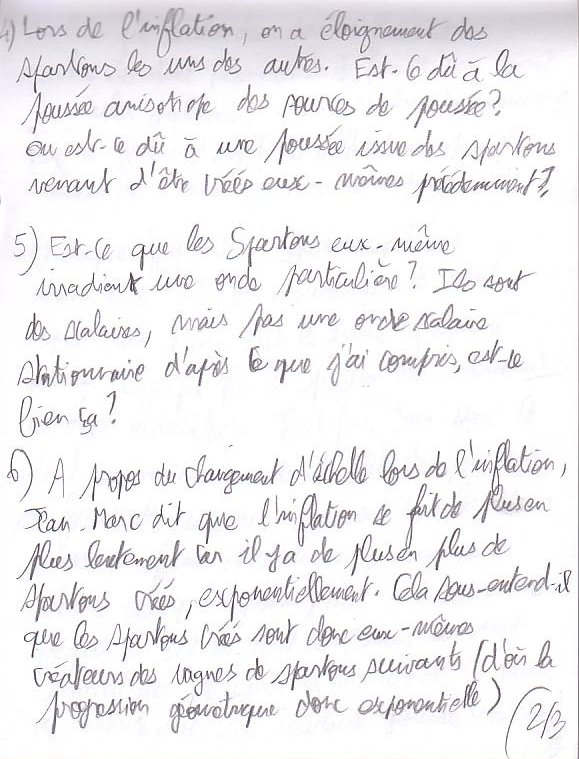 4) Lors de l'inflation, on a éloignement des
spartons les uns des autres. Est-ce dû à la
poussée anisotrope des sources de poussée?
ou est-ce dû à une poussée issue des spartons
venant d'être créés eux-mêmes précédemment?
5) Est-ce que les Spartons eux-même
irradient une onde particulière? Ils sont
des scalaires, mais pas une onde scalaire
stationnaire d'après ce que j'ai compris, est-ce
bien ça?
6) A propos du changement d'échelle lors de l'inflation,
Jean-Marc dit que l'inflation se fait de plus en
plus lentement car il y a de plus en plus de
spartons créés, exponentiellement. Cela sous-entend-il
que les spartons créés sont donc eux-mêmes
créateurs des vagues de spartons suivants (d'où la
progression géométrique donc exponentielle)
(2/3